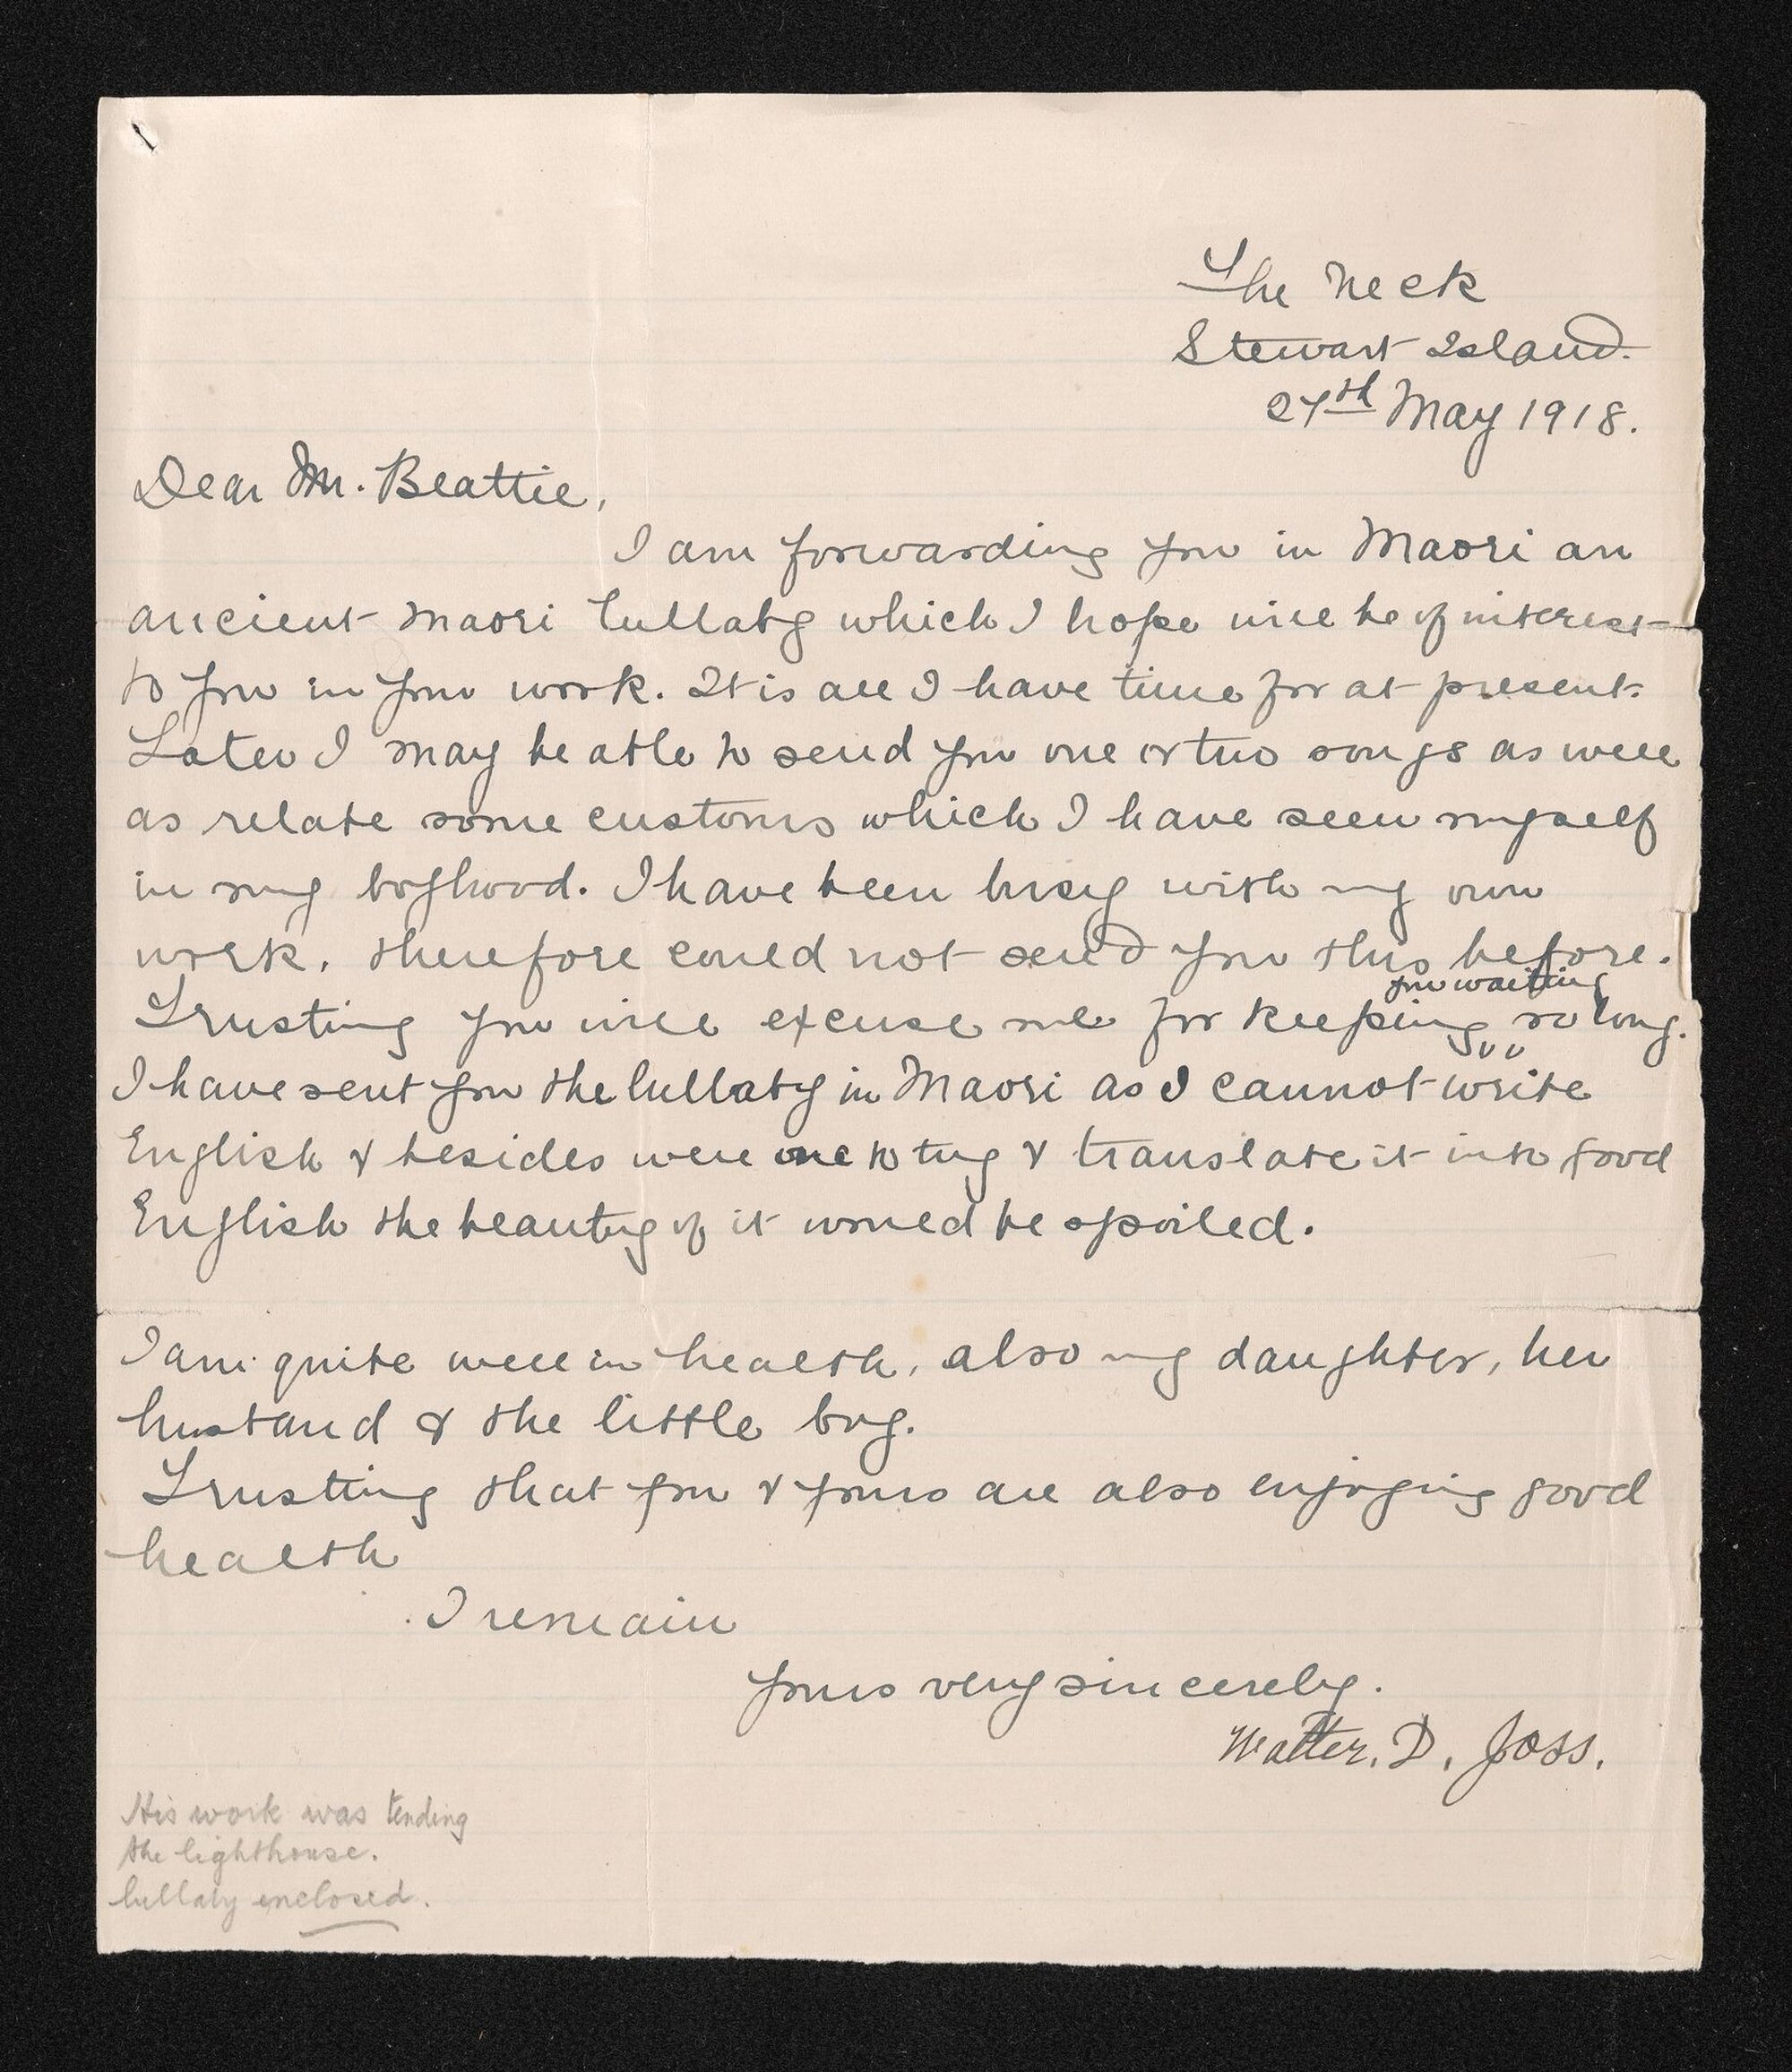 The Neck
Stewart Island.
27th May 1918.
Dear Mr. Beattie,
I am forwarding you in Maori an
ancient maori lullaby which I hope will be of interest
to you in your work. It is all I have time for at present.
Later I may be able to send you one or two songs as well
as relate some customs which I have seen myself
in my boyhood. I have been busy with my own
work, therefore could not send you this before.
you waiting
Trusting you will excuse me for keeping so long.
I have sent you the lullaby in Maori as I cannot write
English & besides were one to try & translate it into good
English the beauty of it would be spoiled.
I am quite well in health, also my daughter, her
husband & the little boy.
Trusting that you & yours are also enjoying good
health
I remain
yours very sincerely.
Walter. D. Joss.
His work was tending
the lighthouse.
lullaby enclosed.